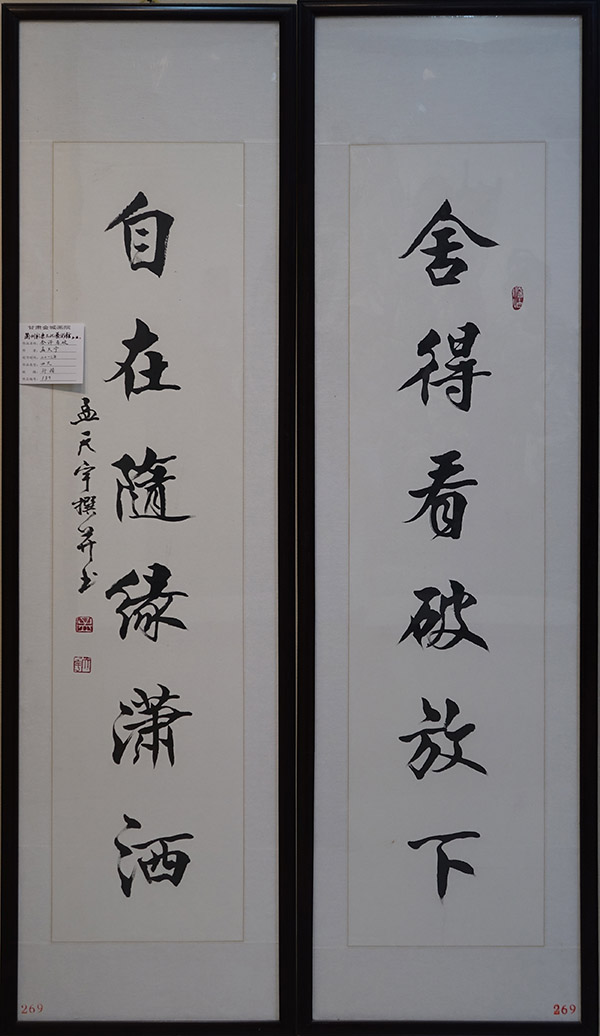 舍得看破放下
自在隨緣瀟洒
孟天宇撰并书
甘肃金城画院
269
269